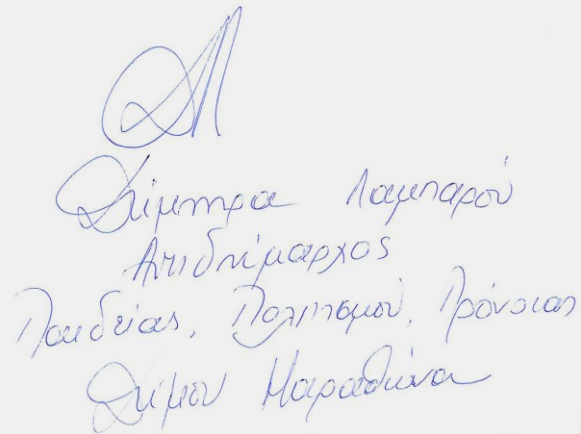 Δήμητρα Λαμπαρού
Αντιδήμαρχος
Παιδείας, Πολιτισμού, Πρόνοιας
Δήμου Μαραθώνα